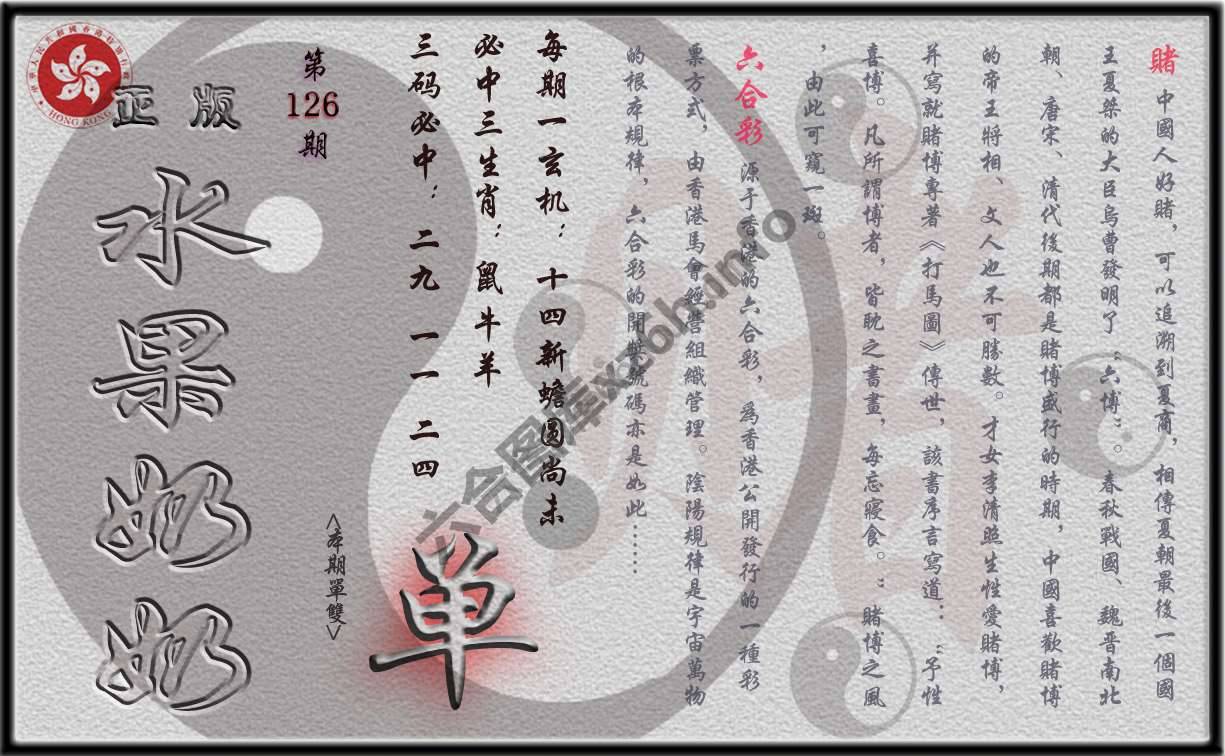 賭 中國人好賭，可以追溯到夏商，相傳夏朝最後一個國
王夏桀的大臣烏曹發明了“六博”。春秋戰國、魏晋南北
朝、唐宋、清代後期都是賭博盛行的時期，中國喜歡賭博
的帝王將相、文人也不可勝數。才女李清照生性愛賭博，
并寫就賭博專著《打馬圖》傳世，該書序言寫道：“予性
喜博。凡所謂博者，皆耽之書畫，每忘寢食。”賭博之風
，由此可窺一斑。
六合彩 源于香港的六合彩，爲香港公開發行的一種彩
票方式，由香港馬會經營組織管理。陰陽規律是宇宙萬物
的根本規律，六合彩的開獎號碼亦是如此……
每期一玄机：十四新蟾圆尚未
必中三生肖：鼠牛羊
三码必中：二九 一一 二四
單
<本期單雙>
第
126
期
正版
水果奶奶
HONG KONG
六合图库xz6h.info